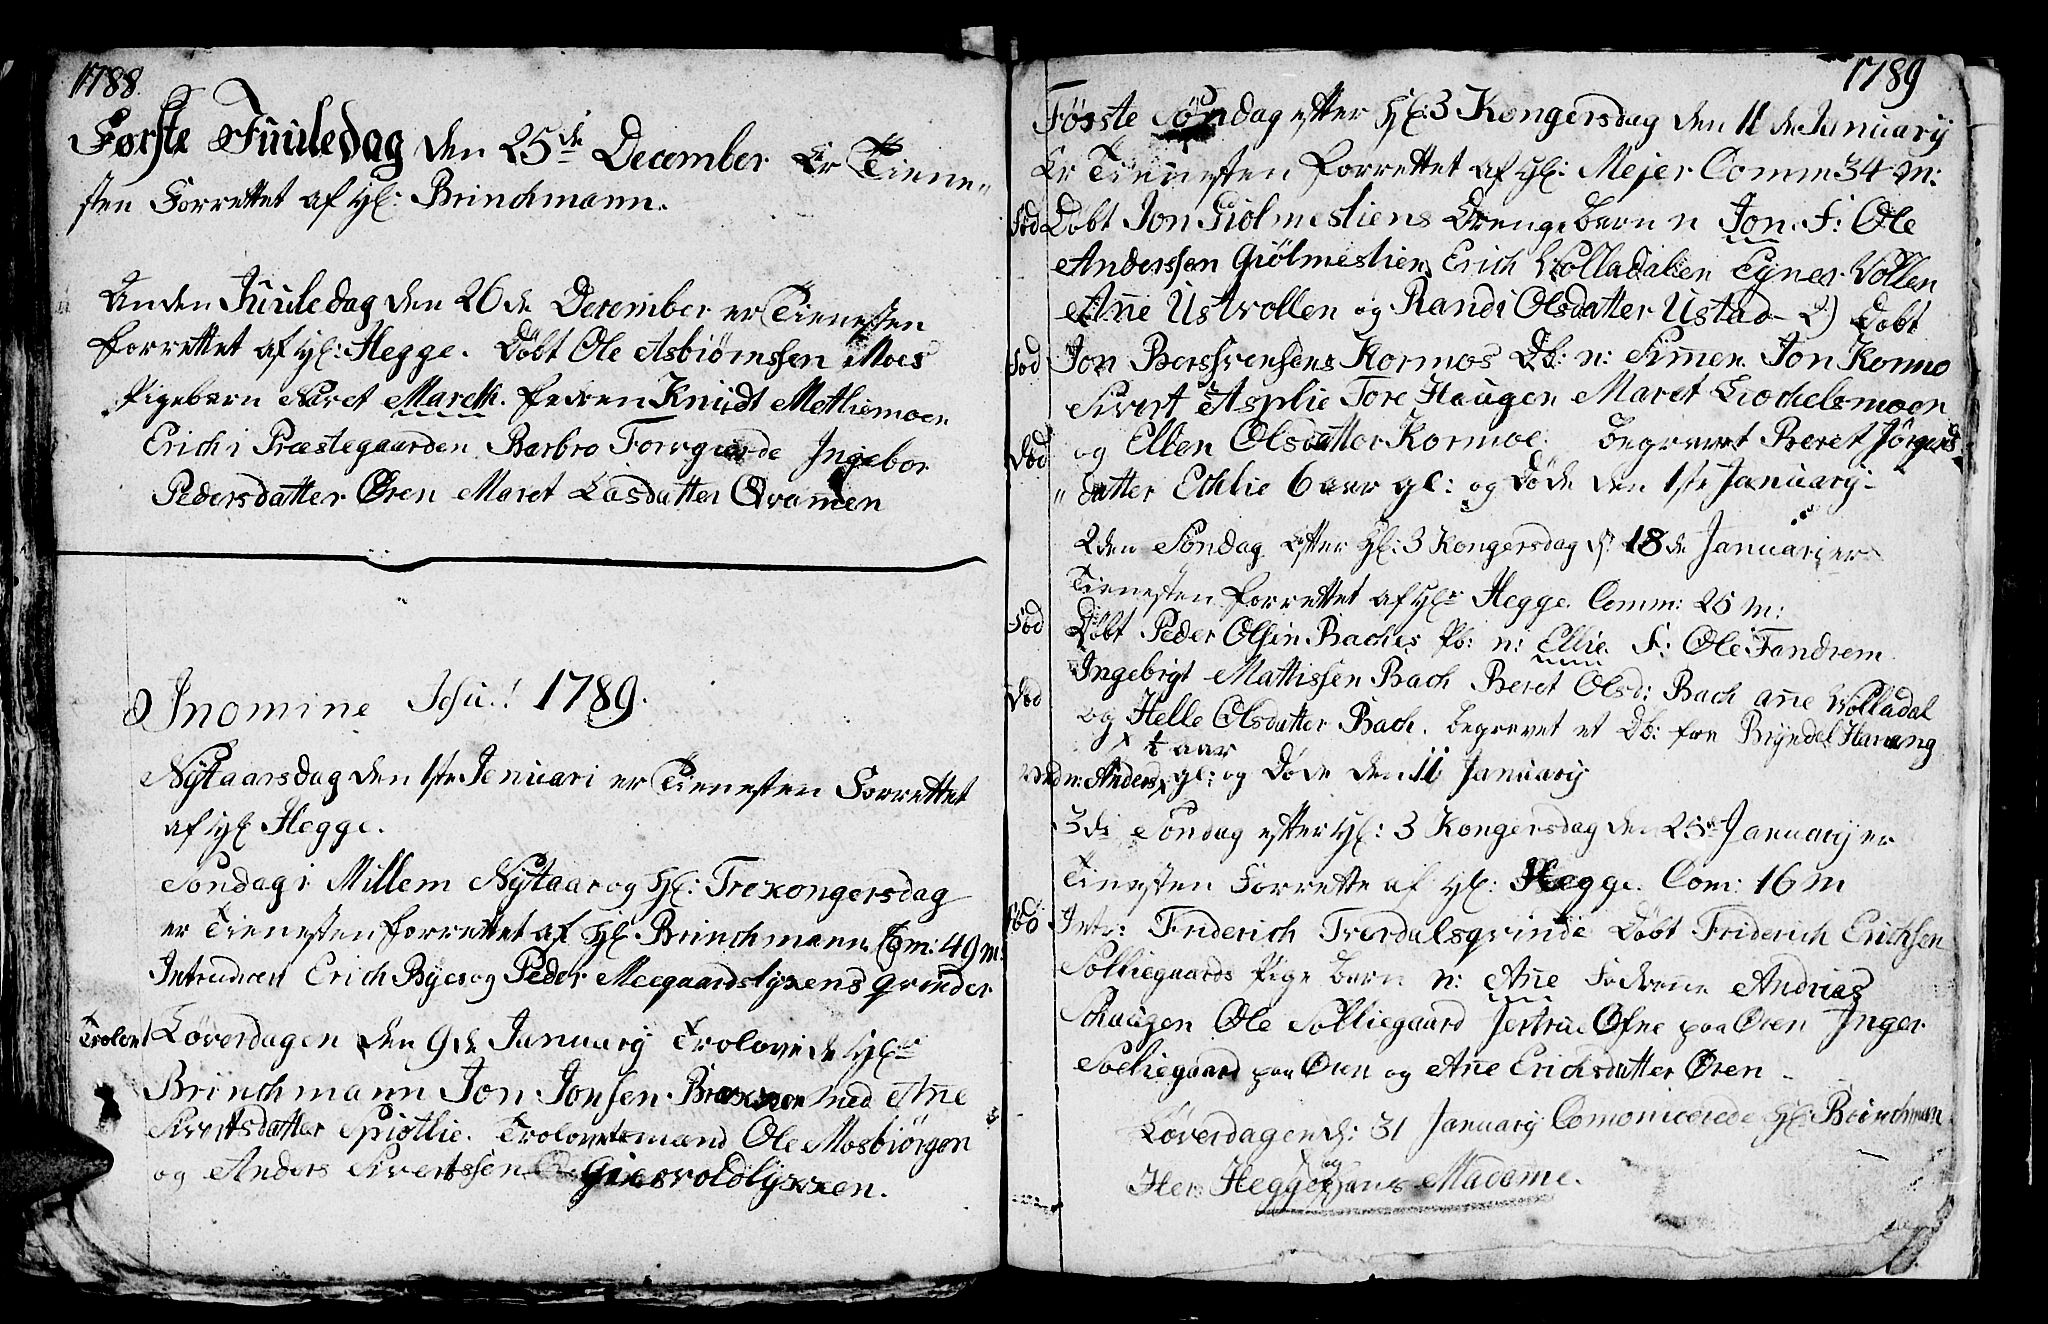 1788.
Første Juuledag den 25de December Er Tiene-
sten Forrettet af Hl: Brinchmann.
Anden Juuledag den 26de December er Tienesten
forrettet af Hl: Hegge. Døbt Ole Asbiørnsen Moes
Pigebarn Maret Fedren Knudt Metliemoen
Erich i Præstegaarden Barbro Forrgaarde Ingebor
Pedersdatter Øren Maret Lasdatter Qvamen
Inomine Jesu! 1789.
Nytaarsdag den 1ste Jenuari er Tienesten Forrettet
af Hl Hegge.
Søndagi Millem Nytaar og Hl: Trekongersdag
er Tienesten forrettet af Hl Brinchmann Com: 49 m:
Introducer Erich Byes og Peder Meegaardslykens qvinder
Trolovet Løverdagen den 9de January Trolovede Hlr
Brinchmann Jon Jonsen Brekken med Ane
Sivertsdatter Spiøtlie. Trolovetsmænd Ole Mosbiørgen
og Anders Sivertssen Giersvoldlykken.
1789
Føsste Søndag efter Hl: 3 Kongersdag den 11 de January
Er Tienesten forrettet af Hl: Mejer Comm 34 m:
Fød Døbt Jon Giølmesliens Drengebarn n Jon. F: Ole
Anderssen Giølmeslien Erich Wolladalen Eyner Vollen
Ane Ustvollen og Randi Olsdatter Ustad 2) Døbt
Fød Jon Kormos Db: n: Simen. Jon Kormo
Sivert Asplie Tore Haugen Maret
Død og Ellen Olsdatter Kormoe. Begravet Beret Jørgens
datter Echlie 6 aar gl: og Døde den 1ste January
2den Søndag Efter Hl: 3 Kongersdag d: 18de Januari er
Tienesten forrettet af Hlr Hegge. Comm: 25 m:
Fød Døbt Peder Olsin Baches Pb: n: Ellie F: Ole Fandrem
Ingebrigt Mattissen Bach Beret Olsd: Bach ane Wolladal
Død og Helle Olsdatter Bach. Begravet et Db: fra Bryndel Harang
x ½ aar
n: Anders x gl: og Døde den 11 January
3de Søndag efter Hl: 3 Kongersdag den 25 January er
Tinesten Forrette af Hl: Hegge. Com: 16 m
Fød Intr: Friderich Trordalsqvinde Døbt Friderich Erichsen
Solliegaards Pige barn n: Ane Fedrene Andrias
Schaugen Ole Solliegaard Jertrue Øfne paa Øren Inger
Solliegaard paa Øren og Ane Erichsdatter Øren
Løverdagen d: 31 January Comonicerede Hl: Brinchman
Her: Hegge og Hans Madame.